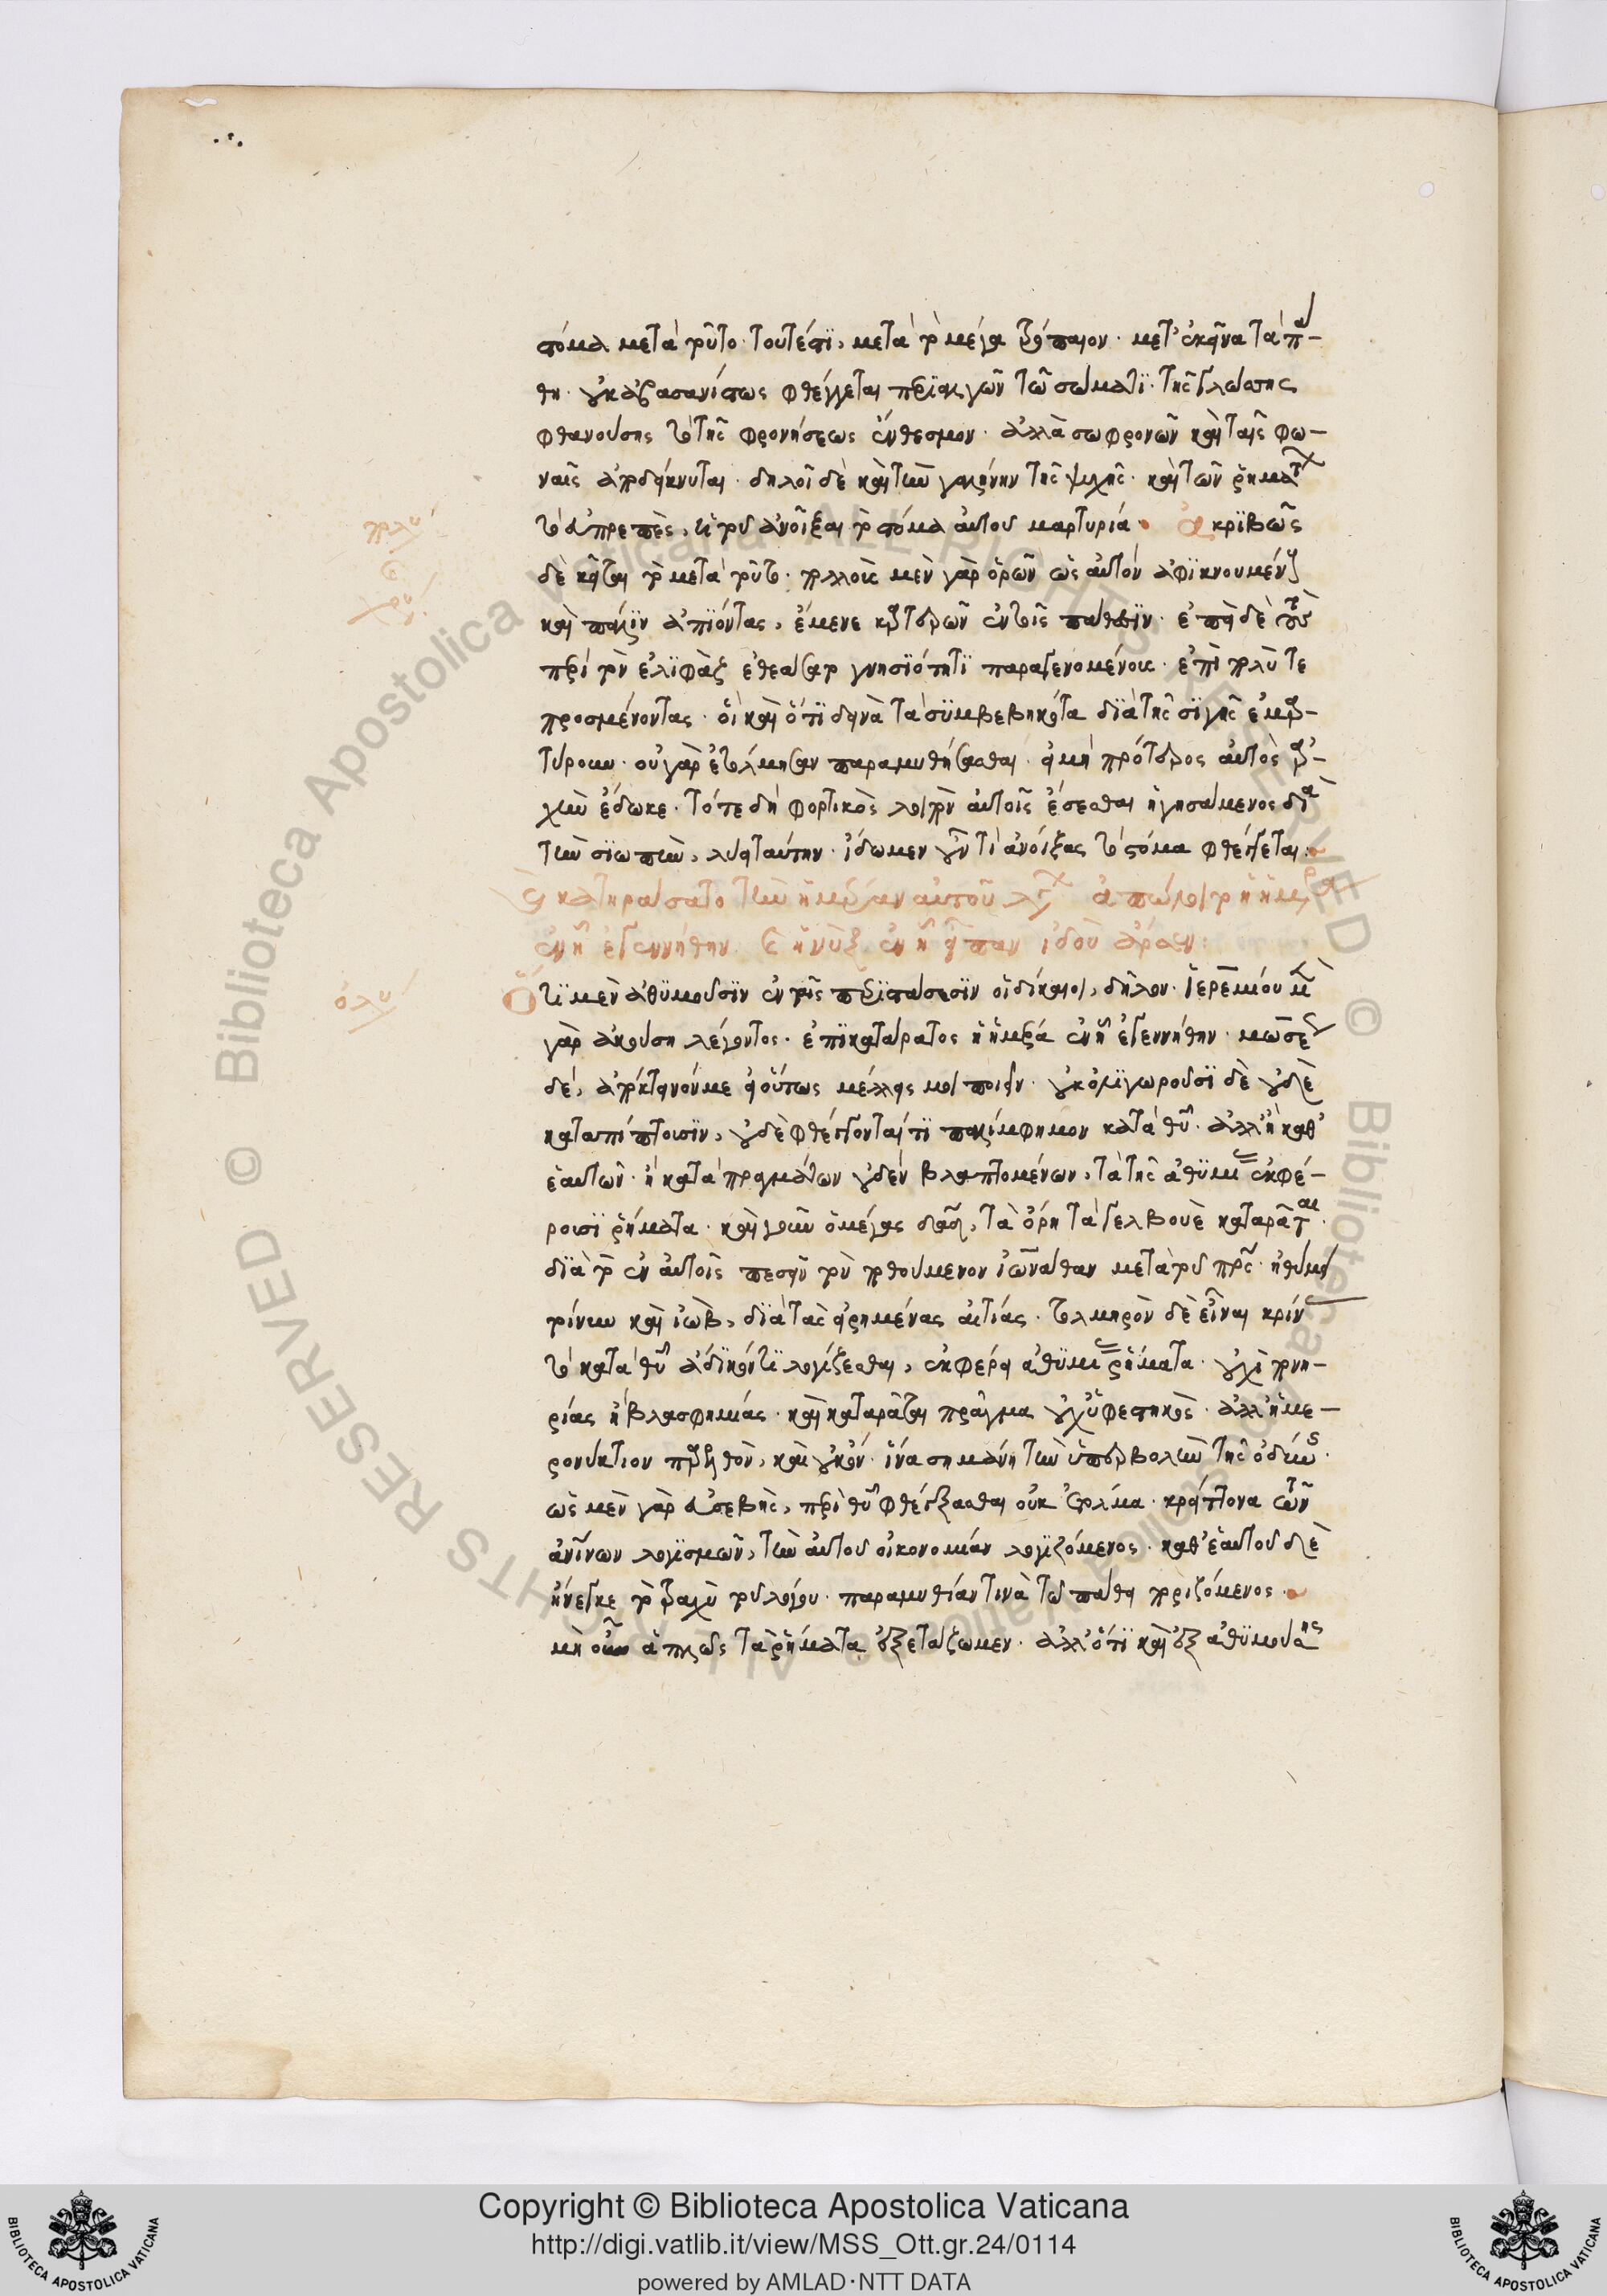 στόμα μετὰ τοῦτο· τουτέστι, μετὰ τὸ μέγα τρόπαιον· μετ' ἐκεῖνα τὰ πά-
θη· οὐκ ἀβασανίστως φθέγγεται περιαλγῶν τῷ σώματι· τῆς γλώττης
φθανούσης τὸ τῆς φρονήσεως ἔνθεσμον· ἀλλὰ σωφρονῶν καὶ ταῖς φω-
ναῖς ἀποδείκνυται· δηλοῖ δὲ καὶ τὴν γαλήνην τῆς ψυχῆς· καὶ τῶν ῥημάτων
τὸ εὐπρεπὲς, ἡ τοῦ ἀνοῖξαι τὸ στόμα αὐτοῦ μαρτυρία· ἀκριβῶς
πολυ
δὲ κεῖται τὸ μετὰ τοῦτο· πολλοὺς μὲν γὰρ ὁρῶν ὡς αὐτὸν ἀφικνουμένους
καὶ πάλιν ἀπιόντας, ἔμενε καρτερῶν ἐν τοῖς πάθεσιν· ἐπεὶ δὲ τοὺς
περὶ τὸν ἐλιφὰζ ἐθεάσατο γνησιότητι παραγενομένους· ἐπὶ πολύ τε
προσμένοντας· οἳ καὶ ὅτι δεινὰ τὰ συμβεβηκότα διὰ τῆς σιγῆς ἐμαρ-
τύρουν· οὐ γὰρ ἐτόλμησαν παραμυθήσασθαι· εἰ μὴ πρότερος αὐτὸς ἀρ-
χὴν ἔδωκε· τότε δὴ φορτικὸς λοιπὸν αὐτοῖς ἔσεσθαι ἡγησάμενος διὰ
τὴν σιωπὴν, λύει ταύτην· ἴδωμεν οὖν τί ἀνοίξας τὸ στόμα φθέγγεται·
καὶ κατηράσατο τὴν ἡμέραν αὐτοῦ λέγων ἀπόλοιτο ἡ ἡμέρα
ἐν ᾗ ἐγεννήθην· καὶ ἡ νὺξ ἐν ᾗ εἶπαν ἰδοὺ ἄρσεν:
ὀλυ
Ὅτι μὲν ἀθυμοῦσιν ἐν τοῖς περιστάσεσιν οἱ δίκαιοι, δῆλον· ἱερεμίου μὲν
γὰρ ἀκούσῃ λέγοντος· ἐπικατάρατος ἡ ἡμέρα ἐν ᾗ ἐγεννήθην· μωσέως
δέ, ἀπόκτεινόν με εἰ οὕτως μέλλεις μοι ποιεῖν· οὐκ ὀλιγωροῦσι δὲ οὐδὲ
καταπίπτουσιν, οὐδὲ φθέγγονταί τι παλίμφημον κατὰ θυ· ἀλλ' ἢ καθ'
ἑαυτῶν· ἢ κατὰ πραγμάτων οὐδὲν βλαπτομένων, τὰ τῆς ἀθυμίας ἐκφέ-
ρουσι ῥήματα· καὶ γοῦν ὁ μέγας δαδ, τὰ ὄρη τὰ γελβουὲ καταρᾶται·
διὰ τὸ ἐν αὐτοῖς πεσεῖν τὸν ποθούμενον ἰωνάθαν μετὰ τοῦ πρς· ἠθύμει
τοίνυν καὶ ἰὼβ, διὰ τὰς εἰρημένας αἰτίας· τολμηρὸν δὲ εἶναι κρίνας
τὸ κατὰ θυ ἀδικόν τι λογίζεσθαι, ἐκφέρει ἀθυμίας ῥήματα· οὐχὶ πονη-
ρίας ἢ βλασφημίας· καὶ καταρᾶται πρᾶγμα οὐχ ὑφεστηκός· ἀλλ' ἡμε-
ρονύκτιον παρελθὸν, καὶ οὐκ ὄν· ἵνα σημάνῃ τὴν ὑπερβολὴν τῆς ὀδύνης·
ὡς μὲν γὰρ εὐσεβὴς, περὶ θυ φθέγξασθαι οὐκ ἐτόλμα· κρείττονα τῶν
ἀνίνων λογισμῶν, τὴν αὐτοῦ οἰκονομίαν λογιζόμενος· καθ' ἑαυτοῦ δὲ
ἤνεγκε τὸ τραχὺ τοῦ λόγου· παραμυθίαν τινὰ τῷ πάθει ποριζόμενος·
μὴ οὖν ἁπλῶς τὰ ῥήματα ἐξετάζωμεν· ἀλλ' ὅτι καὶ ἐξ ἀθυμούσης
Copyright © Biblioteca Apostolica Vaticana
http://digi.vatlib.it/view/MSS_Ott.gr.24/0114
powered by AMLAD·NTT DATA
BIBLIOTECA APOSTOLICA VATICANA
BIBLIOTECA APOSTOLICA VATICANA
© Biblioteca Apostolica Vaticana ALL RIGHTS RESERVED © Biblioteca Apostolica Vaticana ALL RIGHTS RESERVED